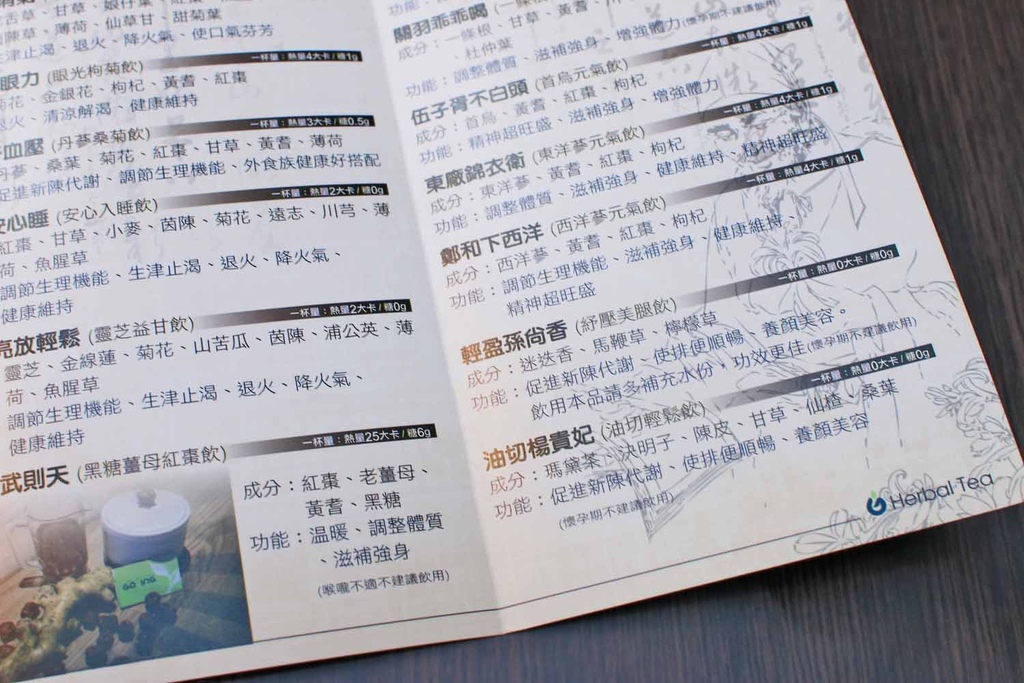 舌草、甘草、娘仔葉
陳草、薄荷、仙草甘、甜菊葉
津止渴、退火、降火氣、使口氣芬芳
一杯量：熱量4大卡/糖1g
眼力 (眼光枸菊飲)
菊花、金銀花、枸杞、黃耆、紅棗
退火、清涼解渴、健康維持
一杯量：熱量3大卡/糖0.5g
血壓 (丹蔘桑菊飲)
丹蔘、桑葉、菊花、紅棗、甘草、黃耆、薄荷
促進新陳代謝、調節生理機能、外食族健康好搭配
一杯量：熱量2大卡/糖0g
安心睡 (安心入睡飲)
紅棗、甘草、小麥、茵陳、菊花、遠志、川芎、薄
荷、魚腥草
調節生理機能、生津止渴、退火、降火氣、
健康維持
一杯量：熱量2大卡/糖0g
亮放輕鬆 (靈芝益甘飲)
靈芝、金線蓮、菊花、山苦瓜、茵陳、浦公英、薄
荷、魚腥草
調節生理機能、生津止渴、退火、降火氣、
健康維持
一杯量：熱量25大卡/糖6g
武則天 (黑糖薑母紅棗飲)
成分：紅棗、老薑母、
黃耆、黑糖
功能：溫暖、調整體質
、滋補強身
(喉嚨不適不建議飲用)
GO ING
功能：
關羽乖乖喝
成分：一條根、甘草、黃耆、川
、杜仲葉
功能：調整體質、滋補強身、增強體力(懷孕期不建議飲用)
一杯量：熱量4大卡/糖1g
伍子胥不白頭 (首烏元氣飲)
成分：首烏、黃耆、紅棗、枸杞
功能：精神超旺盛、滋補強身、增強體力
一杯量：熱量4大卡/糖1g
東廠錦衣衛 (東洋蔘元氣飲)
成分：東洋蔘、黃耆、紅棗、枸杞
功能：調整體質、滋補強身、健康維持、精神超旺盛
一杯量：熱量4大卡/糖1g
鄭和下西洋 (西洋蔘元氣飲)
成分：西洋蔘、黃耆、紅棗、枸杞
功能：調節生理機能、滋補強身、健康維持、
精神超旺盛
一杯量：熱量0大卡/糖0g
輕盈孫尚香 (紓壓美腿飲)
成分：迷迭香、馬鞭草、檸檬草
功能：促進新陳代謝、使排便順暢、養顏美容。
飲用本品請多補充水份，功效更佳(懷孕期不建議飲用)
一杯量：熱量0大卡/糖0g
油切楊貴妃 (油切輕鬆飲)
成分：瑪黛茶、決明子、陳皮、甘草、仙楂、桑葉
功能：促進新陳代謝、使排便順暢、養顏美容
(懷孕期不建議飲用)
Herbal Tea